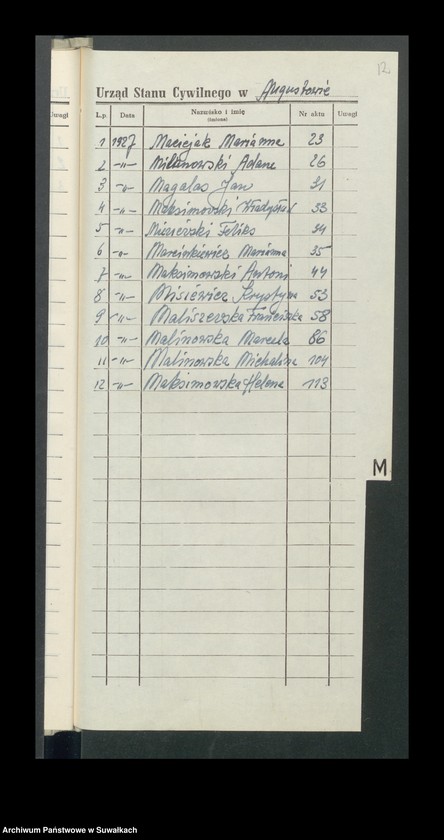 12
Urząd Stanu Cywilnego w Augustowie
Uwagi
L.p. Data Nazwisko i imię (imiona) Nr aktu Uwagi
1 1927 Maciejak Marianna 23
2 -„- Milanowski Adam 26
3 -„- Magalas Jan 31
4 -„- Maksimowski Władysław 33
5 -„- Feliks 34
6 -„- Marcinkiewicz Marianna 35
7 -„- Maksimowski Antoni 44
8 -„- Misiewicz Krystyna 53
9 -„- Maliszewska Franciszka 58
10 -„- Malinowska Marcela 86
11 -„- Malinowska Michalina 104
12 -„- Maksimowska Helena 113
M
Archiwum Państwowe w Suwałkach